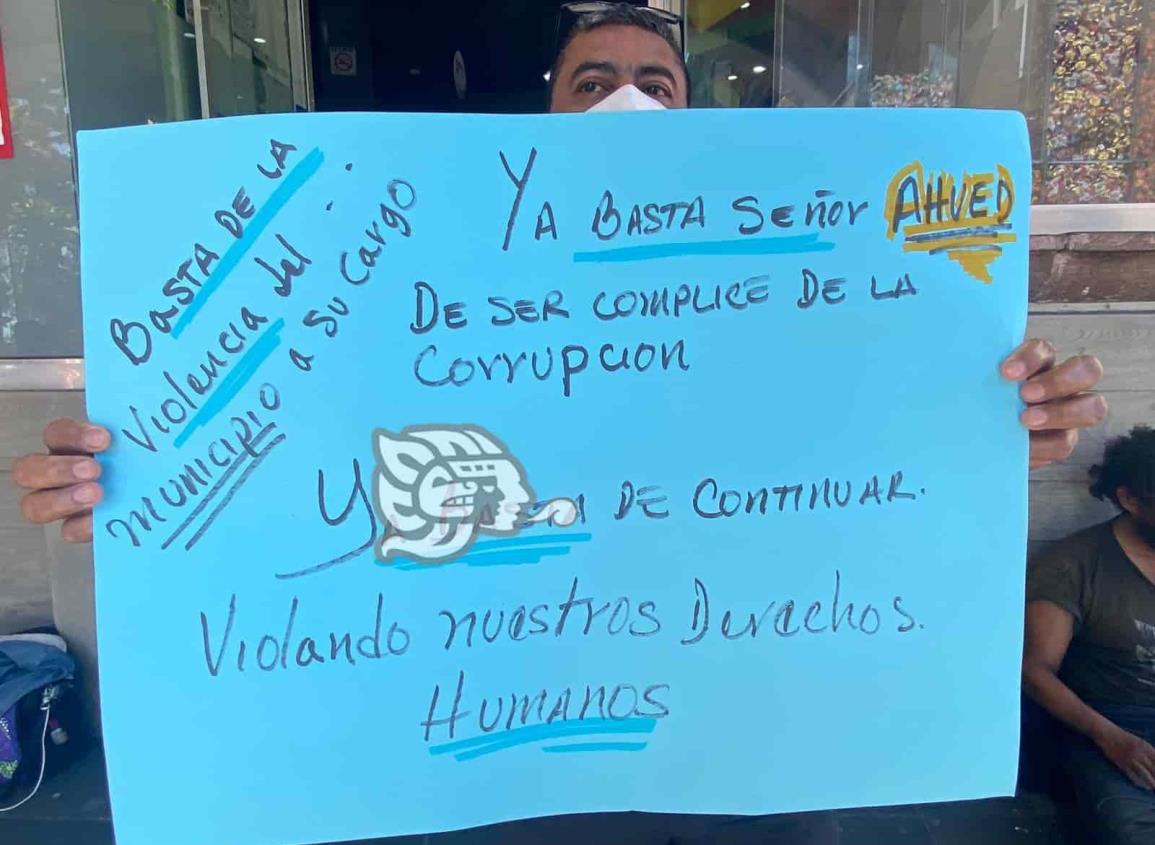 BASTA DE LA
Violencia del
municipio a Su Cargo
YA BASTA SEñor AHUED
DE SER COMPLICE DE LA
Corrupcion
YA BASTA DE CONTINUAR.
Violando nuestros Derechos.
HUMANOS